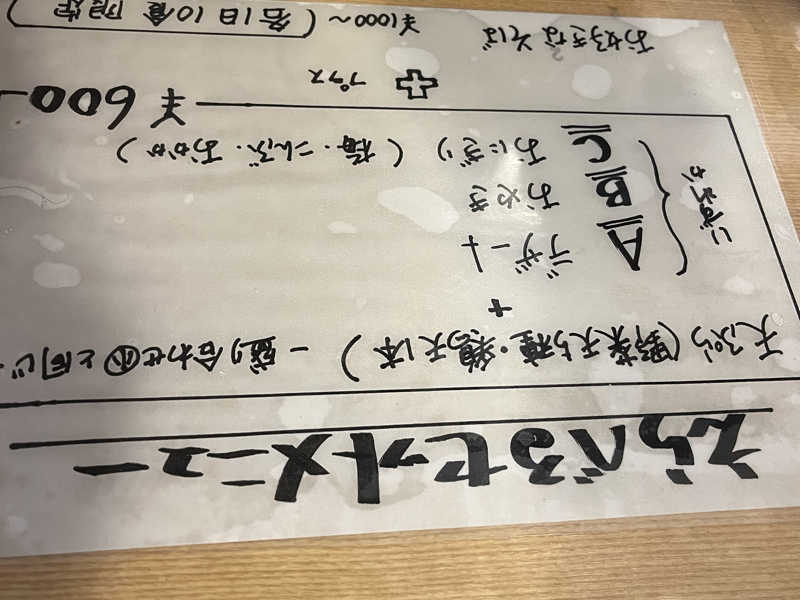 えらべるセットメニュー
天ぷら(野菜天5種・鶏天1本) ー盛り合わせ㊙と同じ
+
いずれか
A デザート
B おやき
C おにぎり (梅・こんぶ・おかか)
¥600-
プラス
お好きなそば ¥1000〜 (各1日10食限定